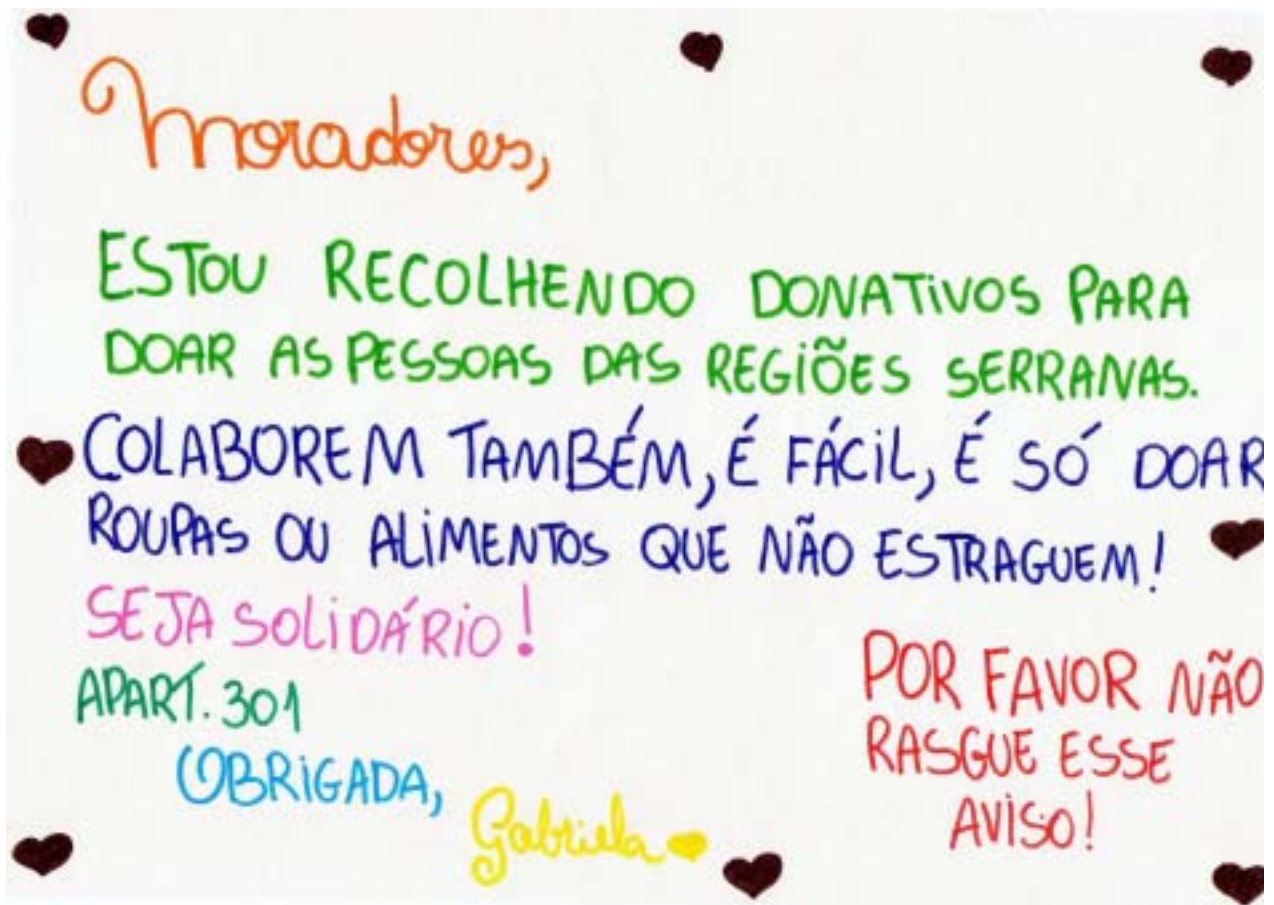 Moradores,
ESTOU RECOLHENDO DONATIVOS PARA
DOAR AS PESSOAS DAS REGIÕES SERRANAS.
COLABOREM TAMBÉM, É FÁCIL, É SÓ DOAR
ROUPAS OU ALIMENTOS QUE NÃO ESTRAGUEM!
SEJA SOLIDÁRIO!
APART. 301
OBRIGADA,
Gabriela
POR FAVOR NÃO
RASGUE ESSE
AVISO!